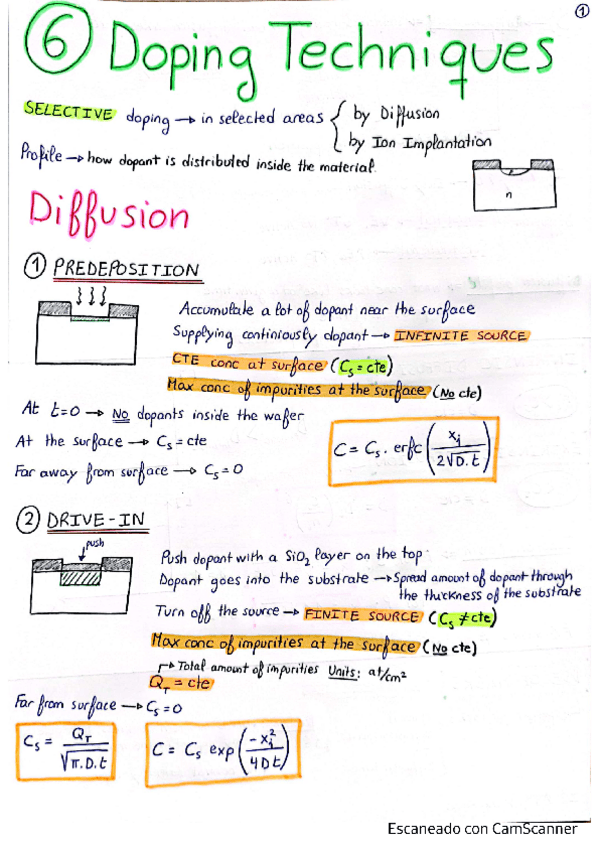 ①
⑥ Doping Techniques
SELECTIVE doping → in selected areas { by Diffusion
by Ion Implantation
Profile → how dopant is distributed inside the material.
n
Diffusion
① PREDEPOSITION
Accumulate a lot of dopant near the surface
Supplying continiously dopant → INFINITE SOURCE
CTE conc at surface (Cs = cte)
Max conc of impurities at the surface (No cte)
At t=0 → No dopants inside the wafer
At the surface → Cs = cte
Far away from surface → Cs = 0
C = Cs . erfc (xj / 2√D.t)
② DRIVE-IN
push
Push dopant with a SiO2 layer on the top.
Dopant goes into the substrate → Spread amount of dopant through
the thickness of the substrate
Turn off the source → FINITE SOURCE (Cs ≠ cte)
Max conc of impurities at the surface (No cte)
↱ Total amount of impurities Units: at/cm²
QT = cte
Far from surface → Cs = 0
Cs = QT / √π.D.t
C = Cs exp (-xj² / 4Dt)
Escaneado con CamScanner